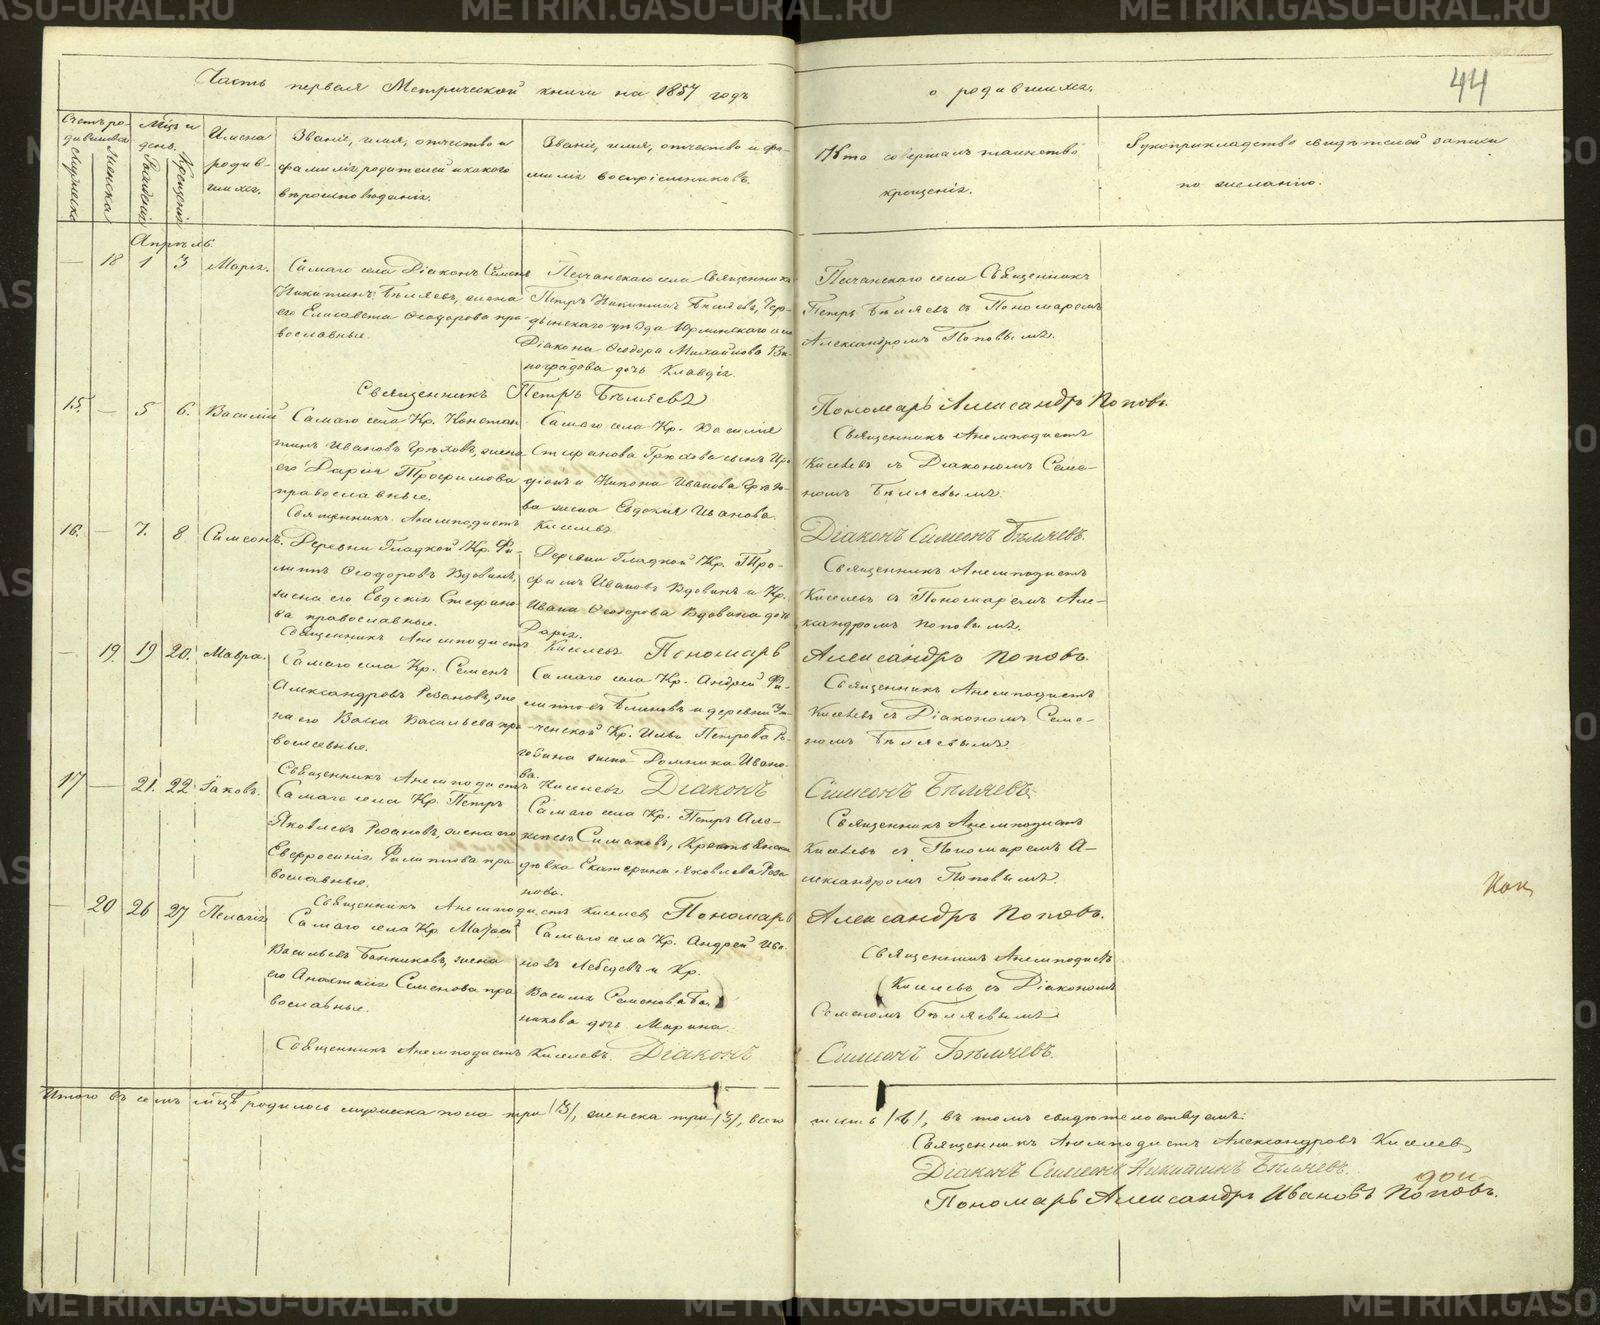 METRIKI.GASU-URAL.RU
Часть первая Метрической книги на 1857 годъ
о родившихся.
44
Счетъ родившихся
Мужеска
Женска
Мѣсяцъ и день
Рожденія
Крещенія
Имена родившихся.
Званіе, имя, отчество и
фамилія родителей и какого
вѣроисповѣданія.
Званіе, имя, отчество и фа-
милія воспріемниковъ.
Кто совершалъ таинство
крещенія.
Рукоприкладство свидѣтелей записи
по желанію.
Апрѣль.
18 1 3 Марія.
Самаго села Діаконъ Симеонъ
Никитинъ Бѣляевъ, жена
его Елисавета Ѳеодорова пра-
вославные.
Песчанскаго села Священникъ
Петръ Никитинъ Бѣляевъ, Чер-
дынскаго уѣзда Юрлинскаго села
Діакона Ѳеодора Михайлова Ви-
ноградова дочь Клавдія.
Песчанскаго села Священникъ
Петръ Бѣляевъ съ Пономаремъ
Александромъ Поповымъ.
Священникъ Петръ Бѣляевъ
Пономарь Александръ Поповъ.
15. — 5 6. Василій
Самаго села Кр. Констан-
тинъ Ивановъ Грѣховъ, жена
его Дарья Трофимова
православные.
Самаго села Кр. Василія
Стефанова Грѣхова сынъ Иро-
діонъ и Никона Иванова Грѣхо-
ва жена Евдокия Иванова.
Священникъ Анемподистъ
Киселевъ съ Діакономъ Семе-
номъ Бѣляевымъ.
Священникъ Анемподистъ Киселевъ
Діаконъ Симеонъ Бѣляевъ.
16. — 7. 8 Симеонъ.
Деревни Гладкой Кр. Фи-
липпъ Ѳеодоровъ Вдовинъ,
жена его Евдокія Стефано-
ва православные.
Деревни Гладкой Кр. Тро-
фимъ Ивановъ Вдовинъ и Кр.
Ивана Ѳеодорова Вдовина дочь
Дарія.
Священникъ Анемподистъ
Киселевъ съ Пономаремъ Але-
ксандромъ Поповымъ.
Священникъ Анемподистъ Киселевъ Пономарь
Александръ Поповъ.
— 19. 19 20. Мавра.
Самаго села Кр. Семенъ
Александровъ Резановъ, же-
на его Васса Васильева пра-
вославные.
Самаго села Кр. Андрей Фи-
липповъ Блиновъ и деревни
Кр. Ильи Петрова
жена Домника Ивано-
ва.
Священникъ Анемподистъ
Киселевъ съ Діакономъ Семе-
номъ Бѣляевымъ.
Священникъ Анемподистъ Киселевъ Діаконъ
Симеонъ Бѣляевъ.
17 — 21. 22 Іаковъ.
Самаго села Кр. Петръ
Яковлевъ Резановъ, жена его
Евфросинія Филиппова пра-
вославные.
Самаго села Кр. Петръ Але-
ксѣевъ Симаковъ,
дѣвка Екатерина Яковлева Реза-
нова.
Священникъ Анемподистъ
Киселевъ съ Пономаремъ А-
лександромъ Поповымъ.
Священникъ Анемподистъ Киселевъ Пономарь
Александръ Поповъ.
— 20 26 27 Пелагія
Самаго села Кр. Матѳей
Васильевъ Банниковъ, жена
его Анастасія Семенова пра-
вославные.
Самаго села Кр. Андрей Ива-
новъ Лебедевъ и Кр.
Василія Семенова Бан-
никова дочь Марина.
Священникъ Анемподистъ
Киселевъ съ Діакономъ
Семеномъ Бѣляевымъ
Священникъ Анемподистъ Киселевъ. Діаконъ
Симеонъ Бѣляевъ.
Итого въ семъ м͠цѣ родилось мужеска пола три /3/, женска три /3/, всего
шесть /6/, въ томъ свидѣтельствуемъ:
Священникъ Анемподистъ Александровъ Киселевъ
Діаконъ Симеонъ Никитинъ Бѣляевъ.
Пономарь Александръ Ивановъ Поповъ.